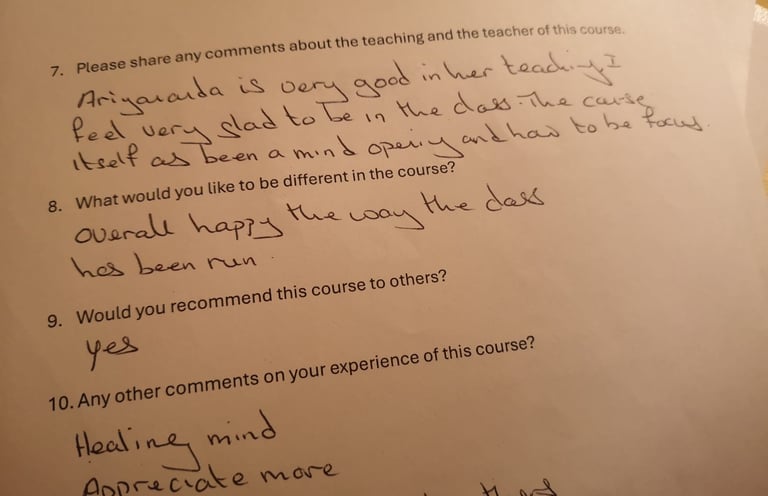 7. Please share any comments about the teaching and the teacher of this course.
is very good in her teaching I
feel very glad to be in the class. The course
itself as been a mind opening and how to be focus.
8. What would you like to be different in the course?
overall happy the way the class
has been run.
9. Would you recommend this course to others?
yes
10. Any other comments on your experience of this course?
Healing mind
Appreciate more